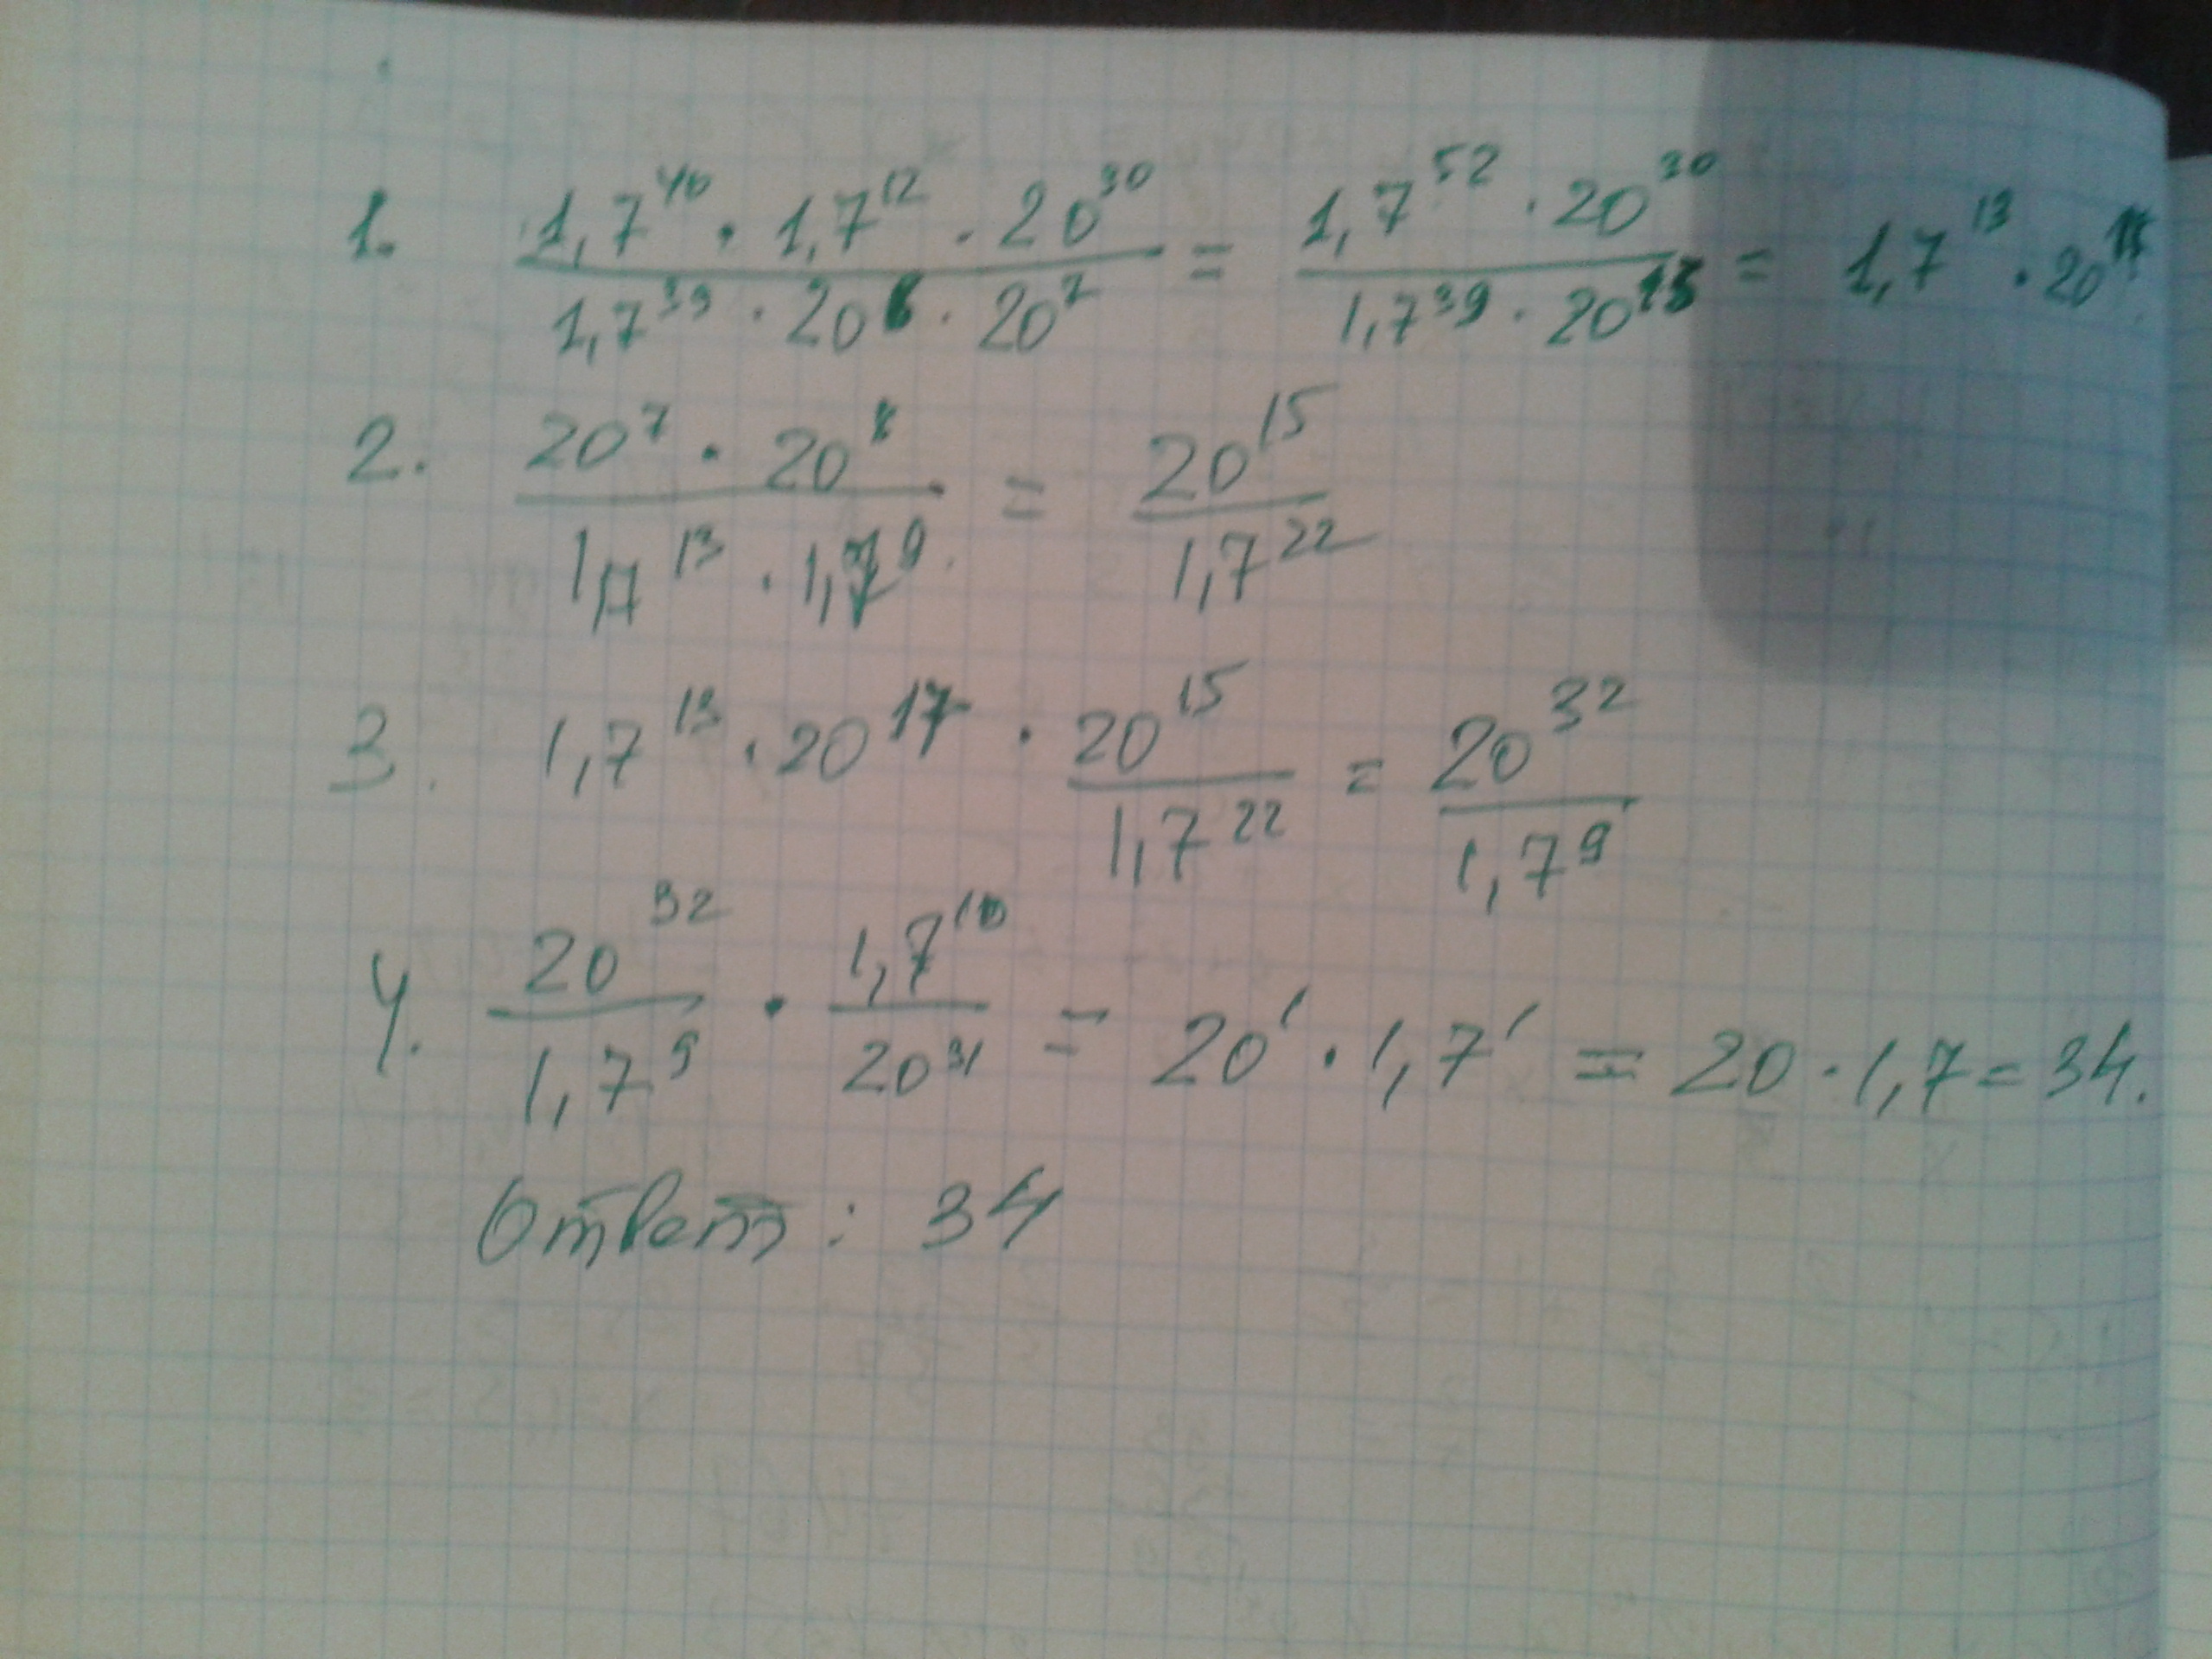 1. (1,7^40 · 1,7^12 · 20^30) / (1,7^39 · 20^6 · 20^7) = (1,7^52 · 20^30) / (1,7^39 · 20^13) = 1,7^13 · 20^17
2. (20^7 · 20^8) / (1,7^13 · 1,7^9) = 20^15 / 1,7^22
3. 1,7^13 · 20^17 · 20^15 / 1,7^22 = 20^32 / 1,7^9
4. 20^32 / 1,7^9 · 1,7^10 / 20^31 = 20^1 · 1,7^1 = 20 · 1,7 = 34.
Ответ: 34